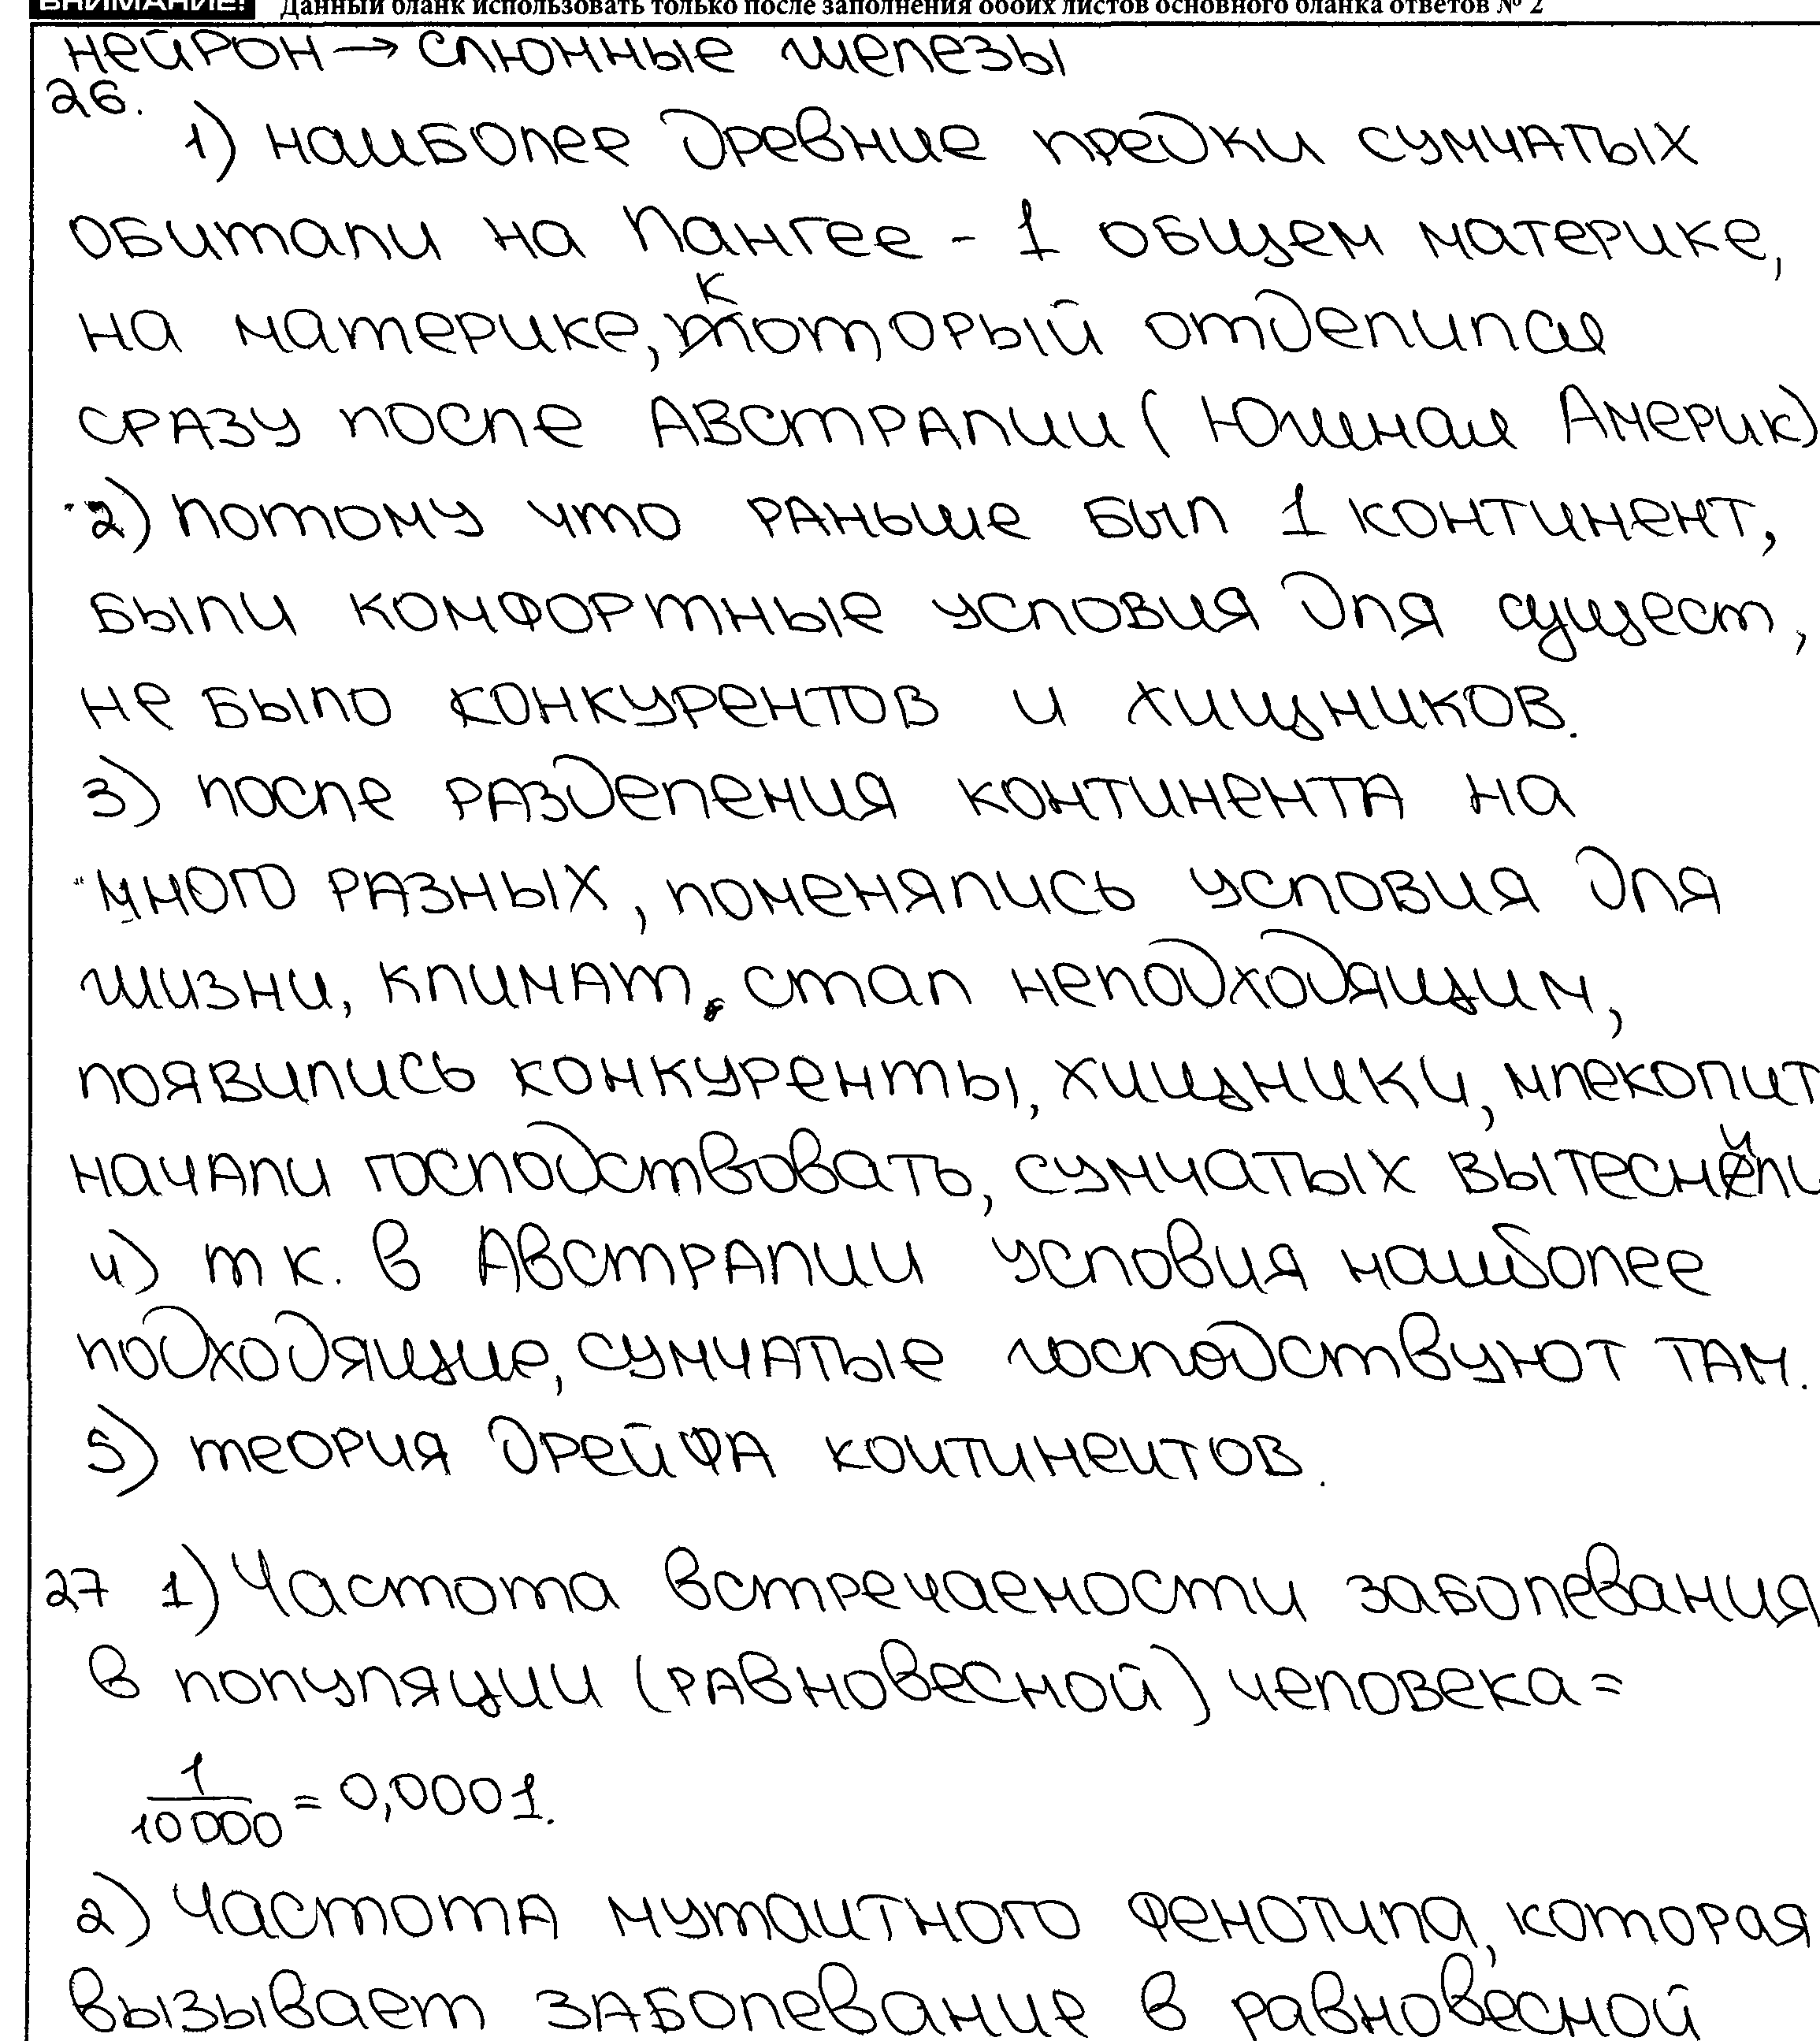 ВНИМАНИЕ! Данный бланк использовать только после заполнения обоих листов основного бланка ответов № 2
нейрон → слюнные железы
26.
1) наиболее древние предки сумчатых
обитали на Пангее - 1 общем материке,
на материке, который отделился
сразу после Австралии (Южная Америк)
2) потому что раньше был 1 континент,
были комфортные условия для сущест,
не было конкурентов и хищников.
3) после разделения континента на
много разных, поменялись условия для
жизни, климат стал неподходящим,
появились конкуренты, хищники, млекопит
начали господствовать, сумчатых вытеснили
4) т к. в Австралии условия наиболее
подходящие, сумчатые господствуют там.
5) теория дрейфа континентов.
27 1) Частота встречаемости заболевания
в популяции (равновесной) человека =
1/10000 = 0,0001.
2) Частота мутантного фенотипа, которая
вызывает заболевание в равновесной